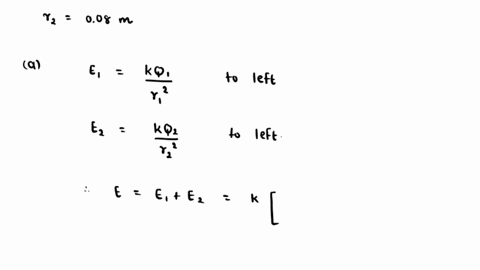 r₂ = 0.08 m
(a) E₁ = kQ₁ / r₁² to left
E₂ = kQ₂ / r₂² to left.
∴ E = E₁ + E₂ = k [